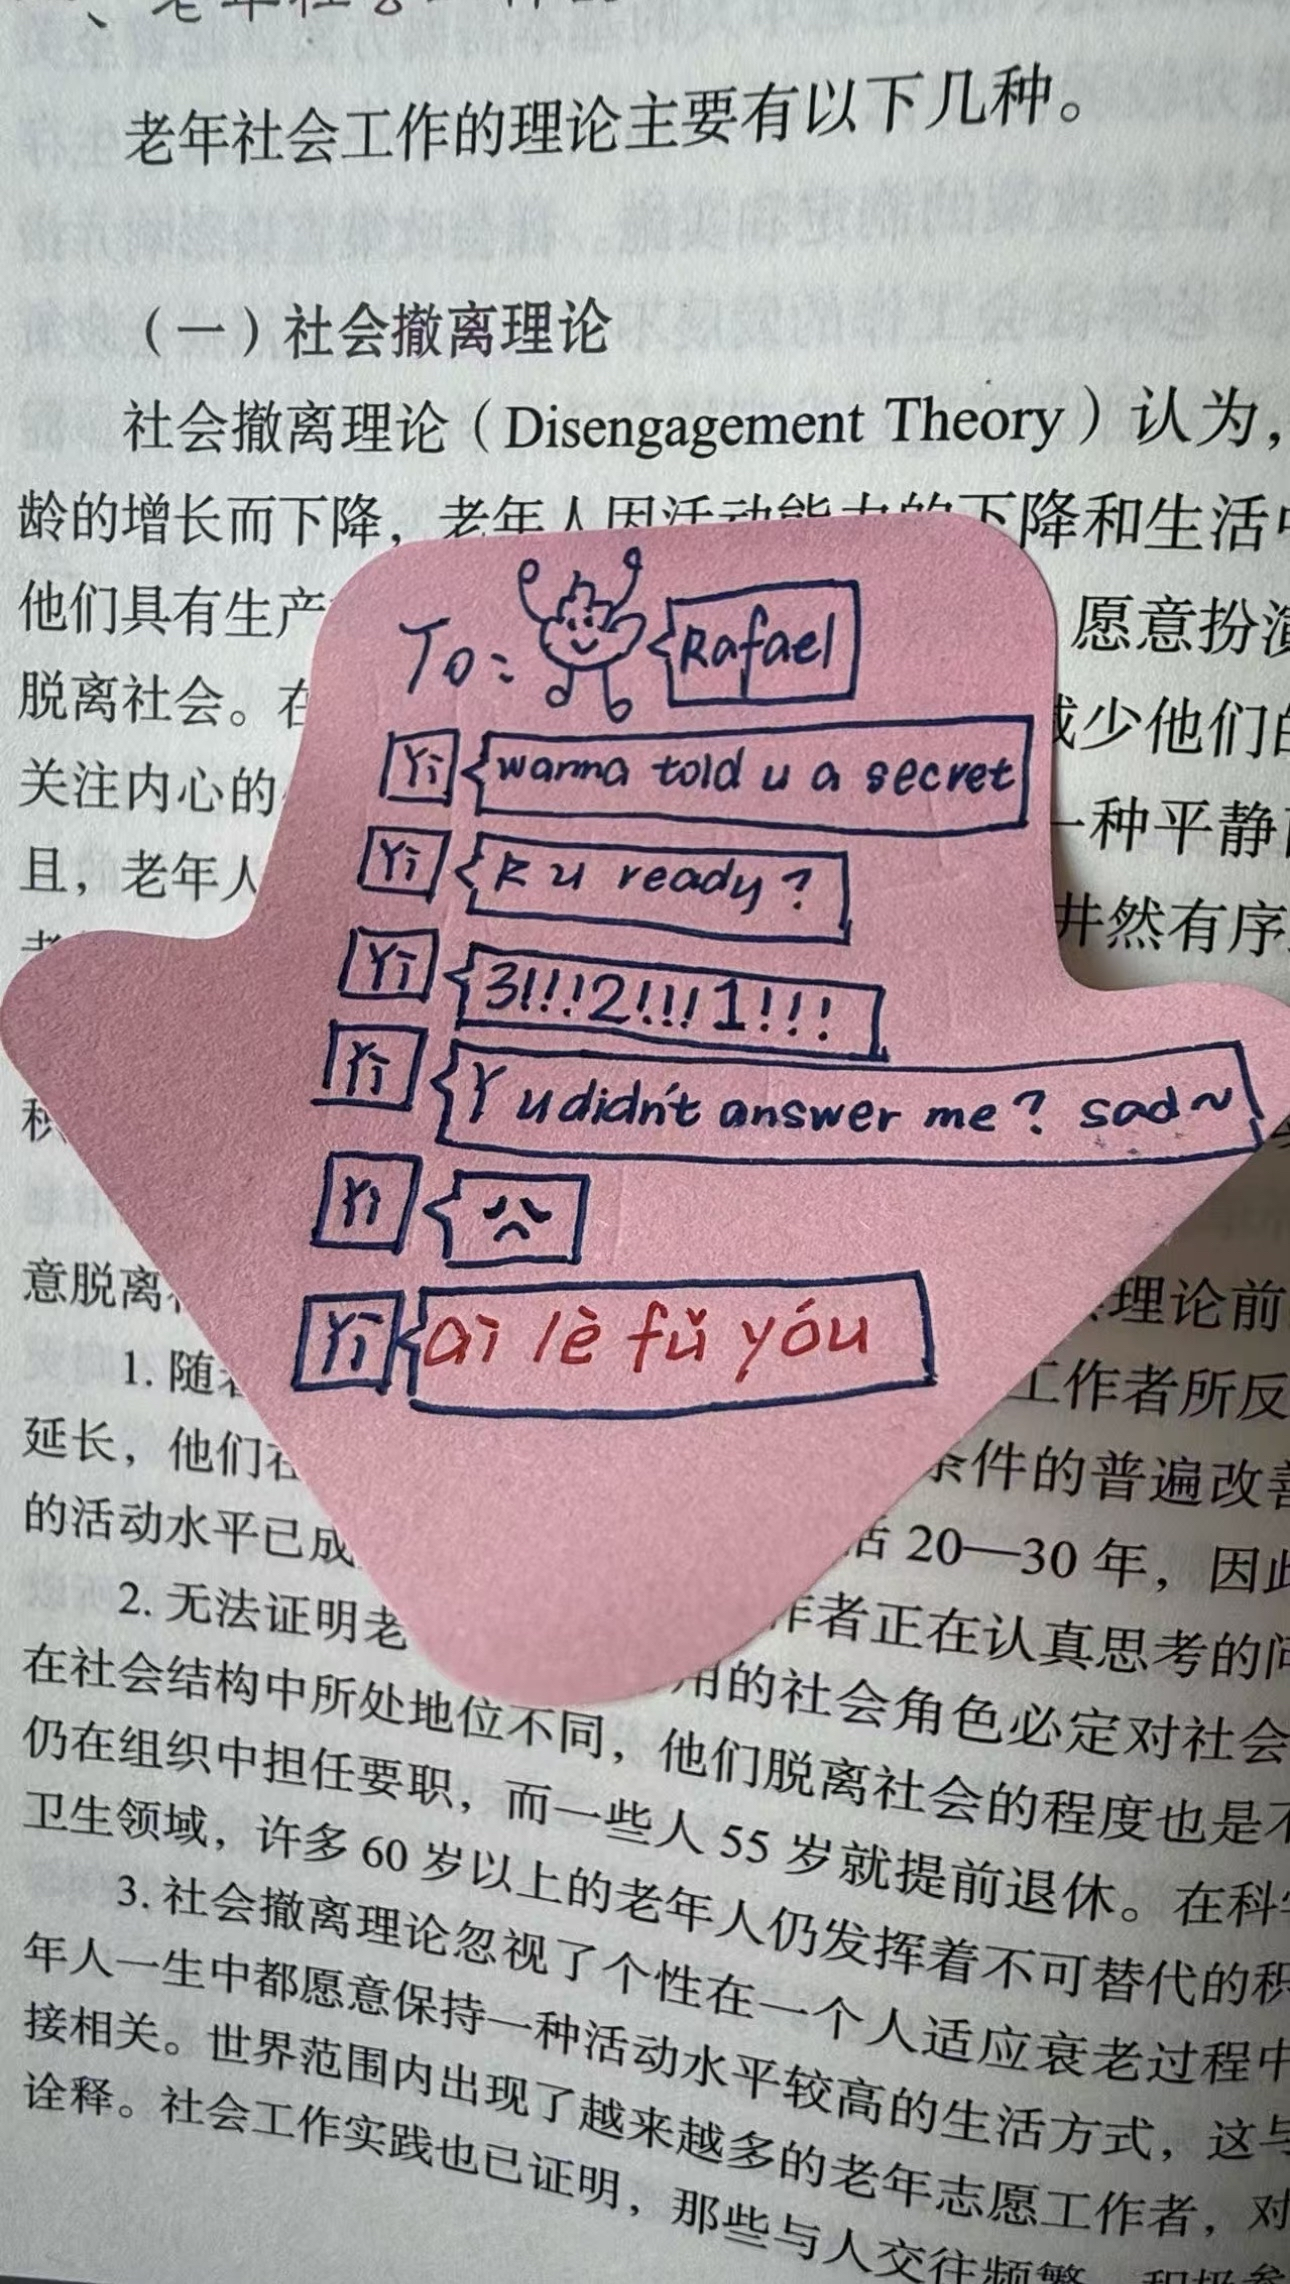 老年社会工作的理论主要有以下几种。
（一）社会撤离理论
社会撤离理论（Disengagement Theory）认为，
龄的增长而下降，老年人因活动能力的下降和生活
他们具有生产 愿意扮演
脱离社会。在 减少他们的
关注内心的 一种平静
且，老年人 井然有序
To: Rafael
Yī wanna told u a secret
Yī R u ready?
Yī 3!!!2!!!1!!!
Yī Y u didn't answer me? sad~
Yī
Yī aì lè fǔ yóu
意脱离 理论前
1. 随着 工作者所反
延长，他们在 条件的普遍改善
的活动水平已成 活 20—30 年，因此
2. 无法证明老 作者正在认真思考的问
在社会结构中所处地位不同， 用的社会角色必定对社会
仍在组织中担任要职， 他们脱离社会的程度也是不
卫生领域， 而一些人 55 岁就提前退休。在科学
许多 60 岁以上的老年人仍发挥着不可替代的积
3. 社会撤离理论忽视了个性在一个人适应衰老过程中
年人一生中都愿意保持一种活动水平较高的生活方式，这与
接相关。世界范围内出现了越来越多的老年志愿工作者，对
诠释。社会工作实践也已证明，那些与人交往频繁